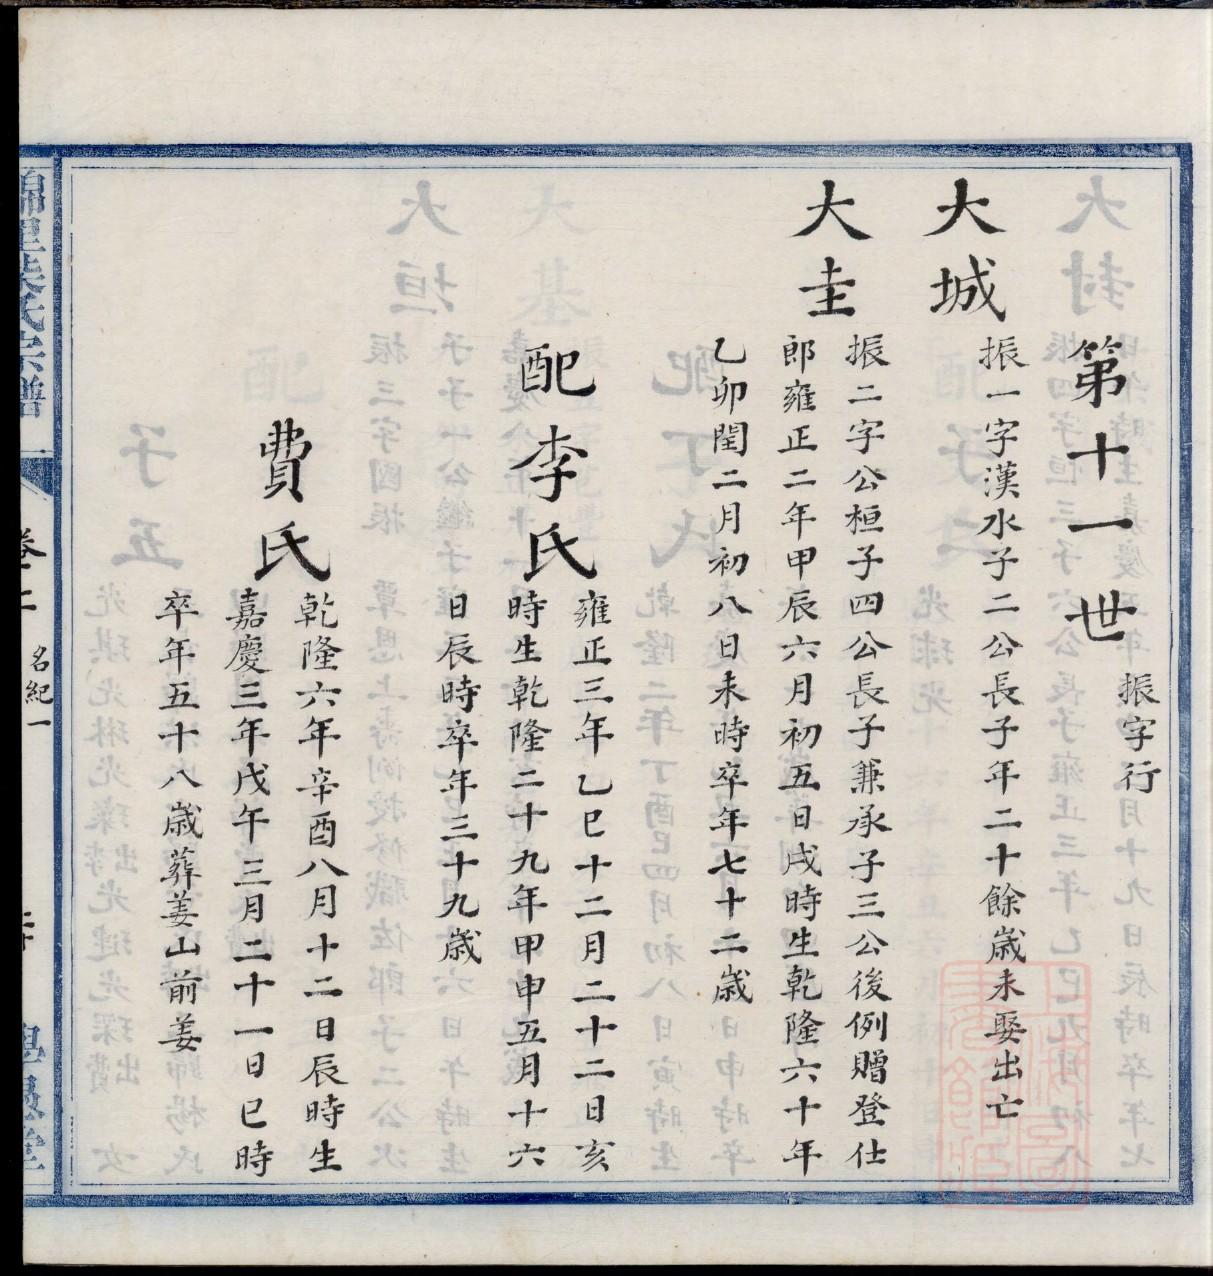 第十一世
振字行
大城
振一字漢水子二公長子年二十餘歲未娶出亡
大圭
振二字公桓子四公長子兼承子三公後例贈登仕
郎雍正二年甲辰六月初五日戌時生乾隆六十年
乙卯閏二月初八日未時卒年七十二歲
配李氏
雍正三年乙巳十二月二十二日亥
時生乾隆二十九年甲申五月十六
日辰時卒年三十九歲
費氏
乾隆六年辛酉八月十二日辰時生
嘉慶三年戊午三月二十一日巳時
卒年五十八歲葬姜山前姜
氏宗譜
名紀一